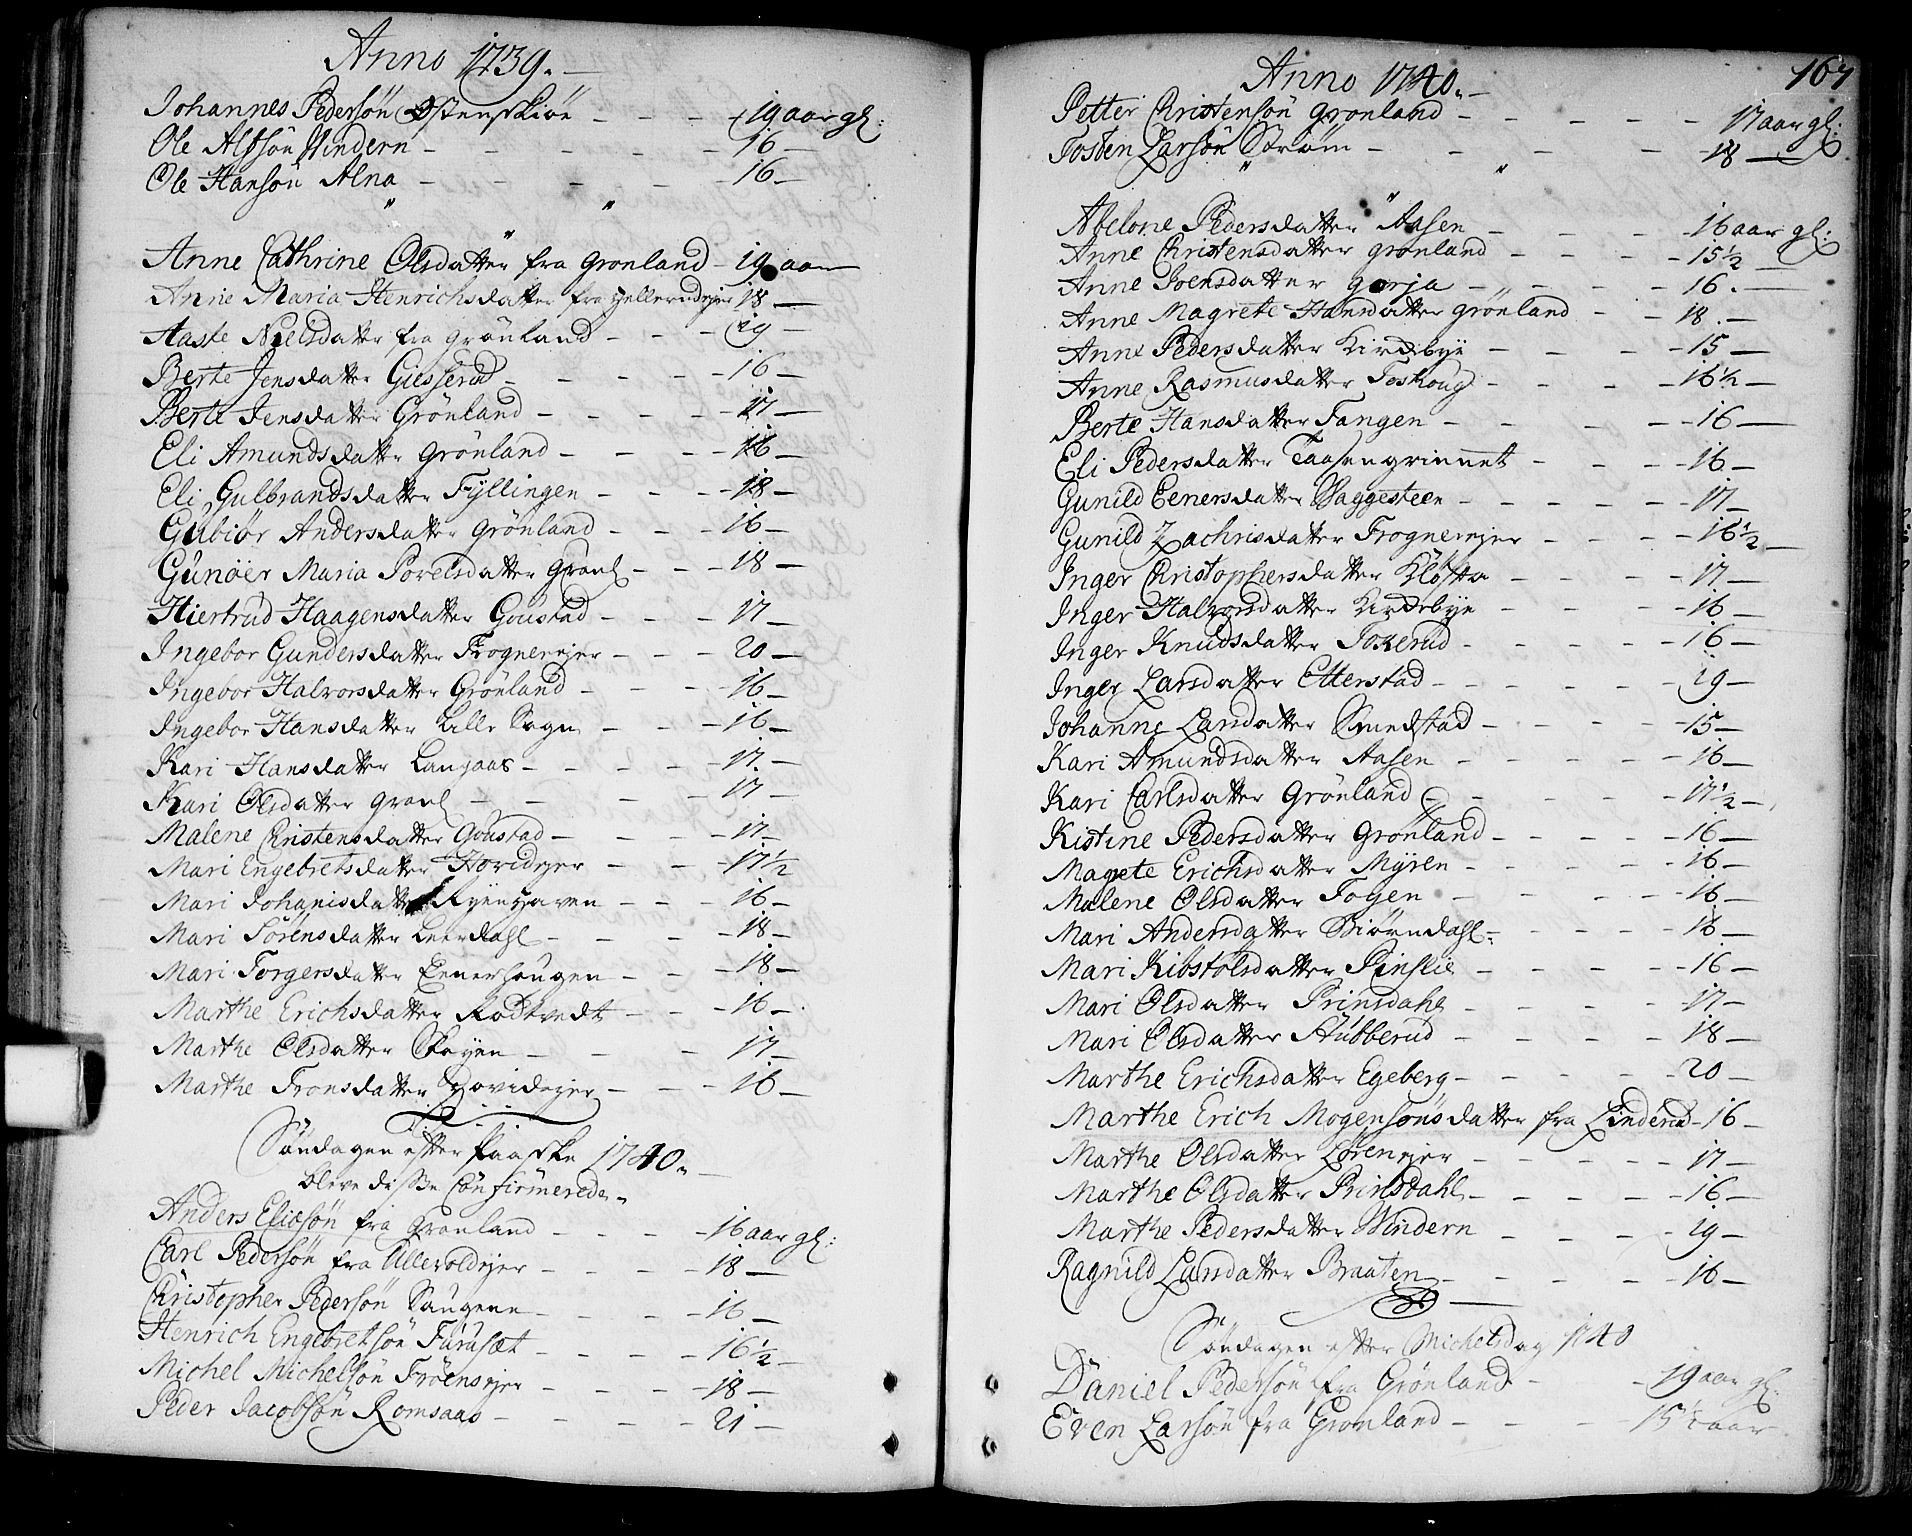 Anno 1739.
Johannes Pedersön Østenskiöe - - - 19 aar gl:
Ole Alfsön Vindern - - - - - 16 -
Ole Hansön Alna - - - - - 16 -
Anne Cathrine Olsdatter fra Grönland - 19 aar
Anne Maria Henrichsdatter fra Hellerudejer 18 -
Aaste Nielsdatter fra Grönland - - - 19 -
Berte Jensdatter Giesserud - - - - 16 -
Berte Jensdatter Grönland - - - - 17 -
Eli Amundsdatter Grönland - - - - 16 -
Eli Gulbrandsdatter Fyllingen - - - 18 -
Gubiör Andersdatter Grönland - - - 16 -
Gunöer Maria Povelsdatter Grönl - - - 18 -
Hiertrud Haagensdatter Goustad - - - 17 -
Ingebor Gundersdatter Frognerejer - - - 20 -
Ingebor Halvorsdatter Grönland - - - 16 -
Ingebor Hansdatter Lille Sogn - - - 16 -
Kari Hansdatter Langaas - - - - 17 -
Kari Olsdatter Grönl - - - - 17 -
Malene Christensdatter Goustad - - - - 17 -
Mari Engebretsdatter Hovidejer - - - 17½
Mari Johanisdatter Ryenhaven - - - 16 -
Mari Sörensdatter Leerdahl - - - - 18 -
Mari Torgersdatter Eenerhougen - - - 18 -
Marthe Erichsdatter Rödtvedt - - - 16 -
Marthe Olsdatter Skøyen - - - 17 -
Marthe Tronsdatter Hovidejer - - - 16 -
Söndagen efter Paaske 1740.
bleve disse Confirmerede.
Anders Elicsön fra Grönland - - - - 16 aar gl:
Carl Pedersön fra Ullevoldejer - - - - 18 -
Christopher Pedersön Haugene - - - - 16 -
Henrich Engebretsön Furusæt - - - - 16½ -
Michel Michelsön Fröensejer - - - - 18 -
Peder Jacobsön Romsaas - - - - 21 -
167
Anno 1740.
Petter Christensön Grönland - - - - - 17 aar gl:
Tosten Larsön Ström - - - - - 18 -
Abelone Pedersdatter Aasen - - - - 16 aar gl:
Anne Christensdatter Grönland - - - - 15½ -
Anne Joensdatter Gorja - - - - 16. -
Anne Magrete Hansdatter Grönland - - 18. -
Anne Pedersdatter Kirkebye - - - - 15 -
Anne Rasmusdatter Toshoug - - - - 16½ -
Berte Hansdatter Tangen - - - - 16 -
Eli Pedersdatter Taasengrinnet - - - - 16 -
Gunild Eenersdatter Vaggesteen - - - - 17 -
Gunild Zachrisdatter Frognerejer - - - - 16½ -
Inger Christophersdatter Kløfta - - - - 17 -
Inger Halvorsdatter Kirkebye - - - - 16 -
Inger Knudsdatter Tokerud - - - - 16 -
Inger Larsdatter Etterstad - - - - - 19 -
Johanne Larsdatter Smedstad - - - - 15 -
Kari Amundsdatter Aasen - - - - 16 -
Kari Carlsdatter Grönland - - - - 17½ -
Kistine Pedersdatter Grönland - - - - 16 -
Magrete Erichsdatter Myren - - - - 16 -
Malene Olsdatter Togen - - - - 16 -
Mari Andersdatter Biörndahl - - - - 16 -
Mari Kibstolsdatter Pinslie - - - - 16 -
Mari Olsdatter Prinsdahl - - - - 17 -
Mari Olsdatter Stubberud - - - - 18 -
Marthe Erichsdatter Egeberg - - - - - 20 -
Marthe Erich Mogensöns datter fra Linderud - 16 -
Marthe Olsdatter Lörenejer - - - - - 17 -
Marthe Olsdatter Prinsdahl - - - - 16 -
Marthe Pedersdatter Vindern - - - - 19 -
Ragnild Larsdatter Braaten - - - - 16 -
Söndagen efter Michelsdag 1740
Daniel Pedersön fra Grönland - - 19 aar gl.
Even Larsön fra Grönland - - - 15½ aar